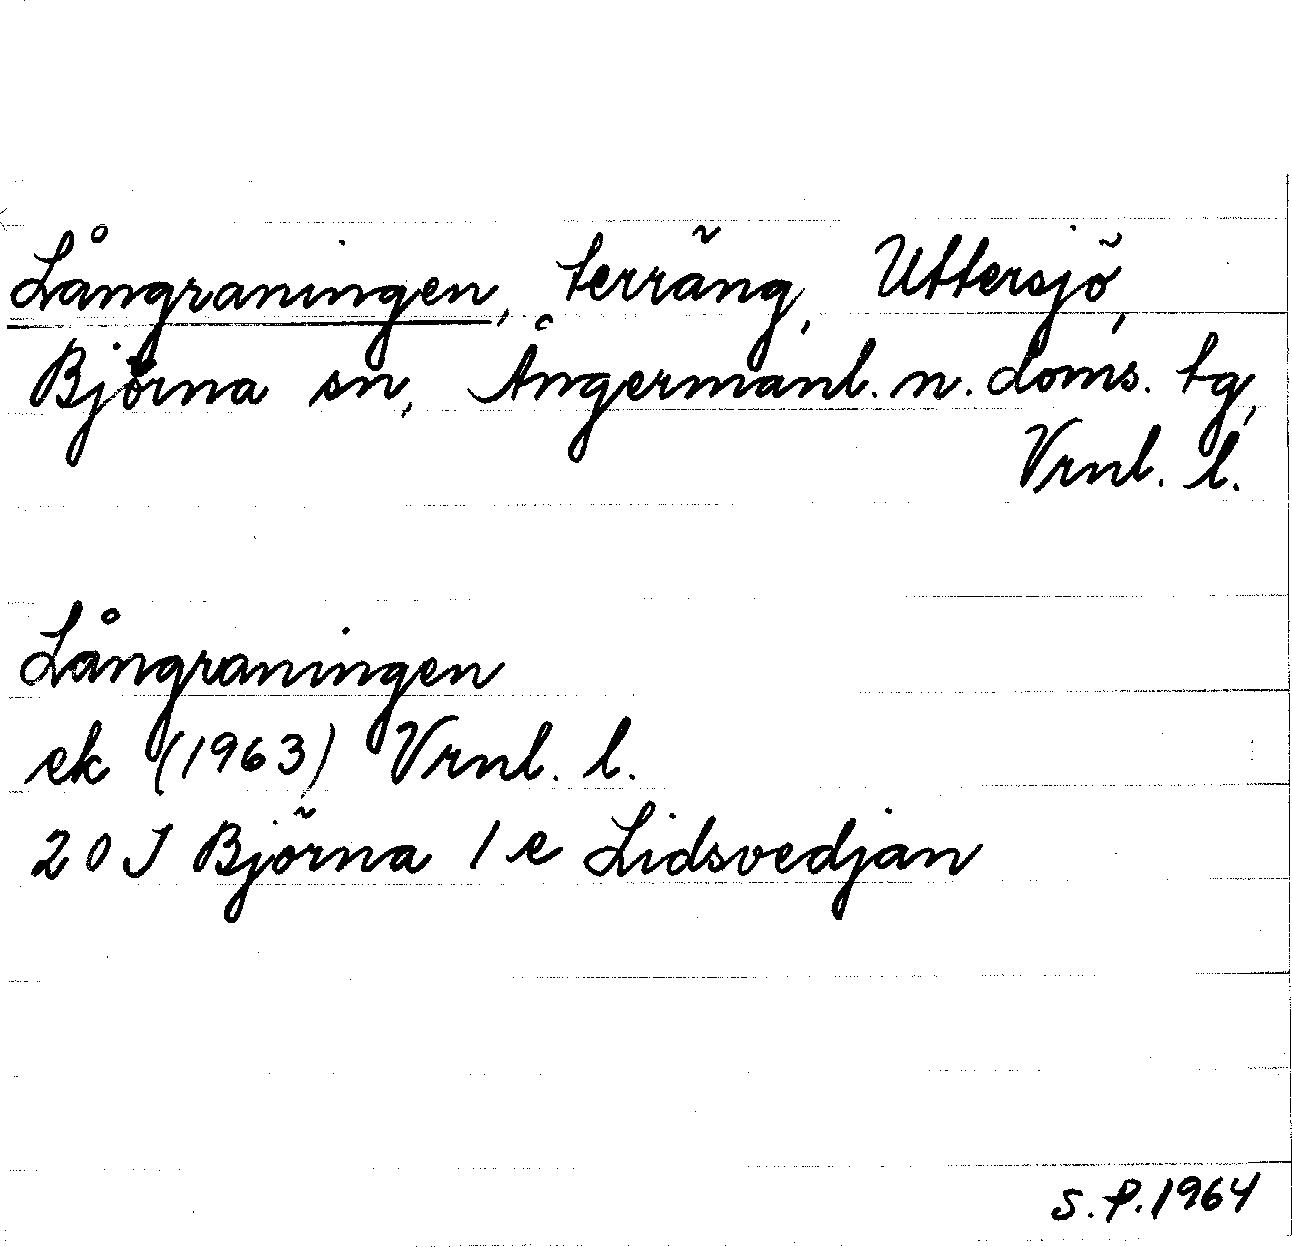 Långraningen, terräng, Uttersjö,
Björna sn, Ångermanl. n. doms. tg,
Vrnl. l.
Långraningen
ek (1963) Vrnl. l.
20 J Björna 1 e Lidsvedjan
S.P. 1964